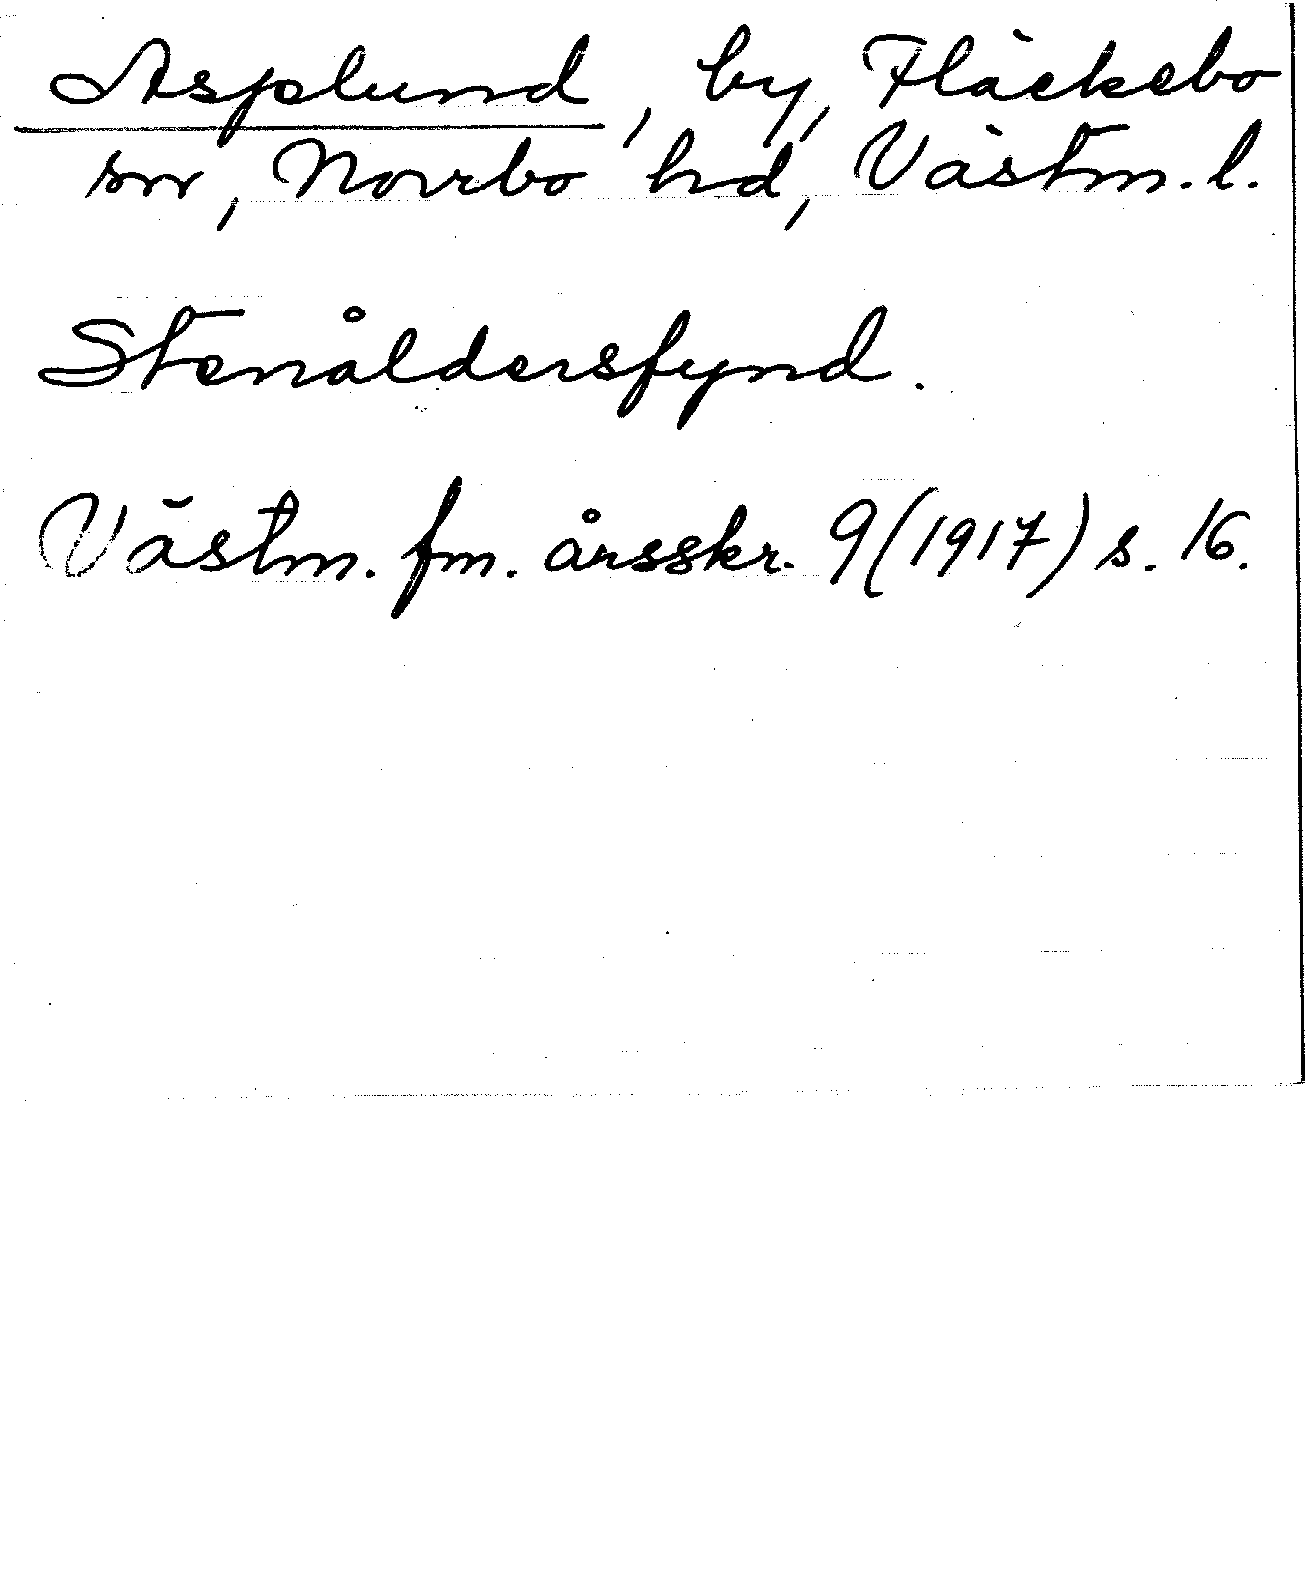 Asplund, by, Fläckebo
sn, Norrbo hd, Västm. l.
Stenåldersfynd.
Västm. fm. årsskr. 9(1917) s. 16.